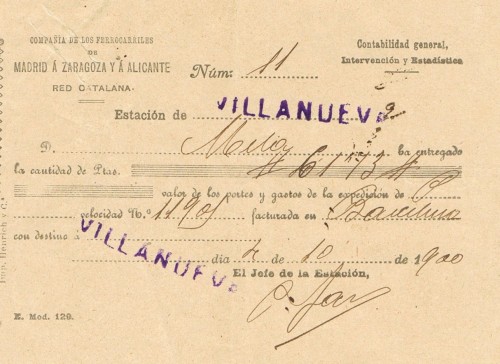 COMPAÑÍA DE LOS FERROCARRILES
DE
MADRID Á ZARAGOZA Y Á ALICANTE
RED CATALANA
Núm: 11
Contabilidad general,
Intervención y Estadística
Estación de VILLANUEVA
D. ha entregado
la cantidad de Ptas.
valor de los portes y gastos de la expedición de P.
velocidad N.º facturada en Barcelona
con destino á VILLANUEVA
día de 10 de 1900
El Jefe de la Estación,
E. Mod. 129.
Imp. Henrich y C.ª